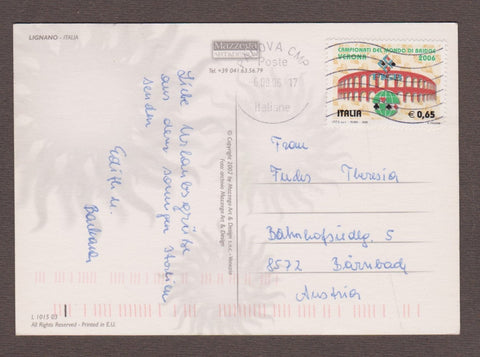 LIGNANO - ITALIA
Mazzega
ART & DESIGN
Tel. +39 041.63.56.79
Liebe Urlaubsgrüße
aus dem sonnigen Italien
senden
Edith u.
Barbara
© Copyright 2002 by Mazzega Art & Design s.n.c. - Venezia
Foto: archivio Mazzega Art & Design
PADOVA CMP
Poste
17
Italiane
CAMPIONATI DEL MONDO DI BRIDGE
VERONA 2006
ITALIA € 0,65
Frau
Theresia
Bahnhofsiedlg 5
8572 Bärnbach
Austria
L 1015 03
All Rights Reserved - Printed in E.U.